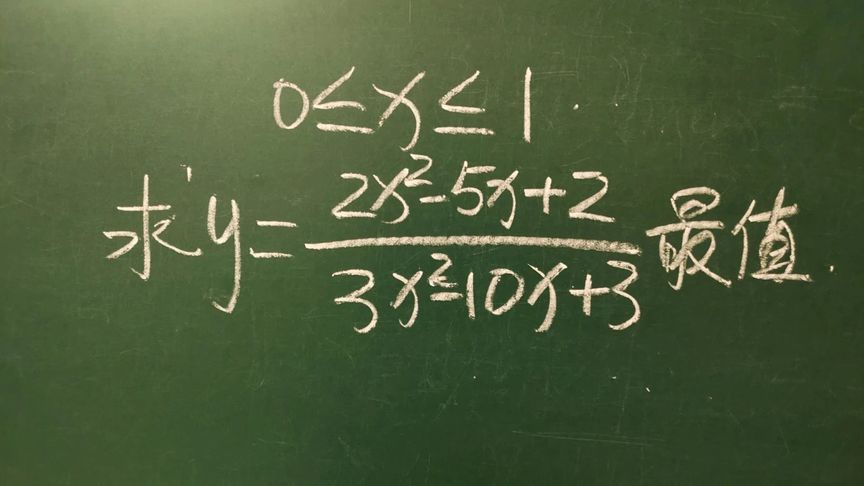 0≤x≤1.
求y=\frac{2x²-5x+2}{3x²-10x+3}最值.